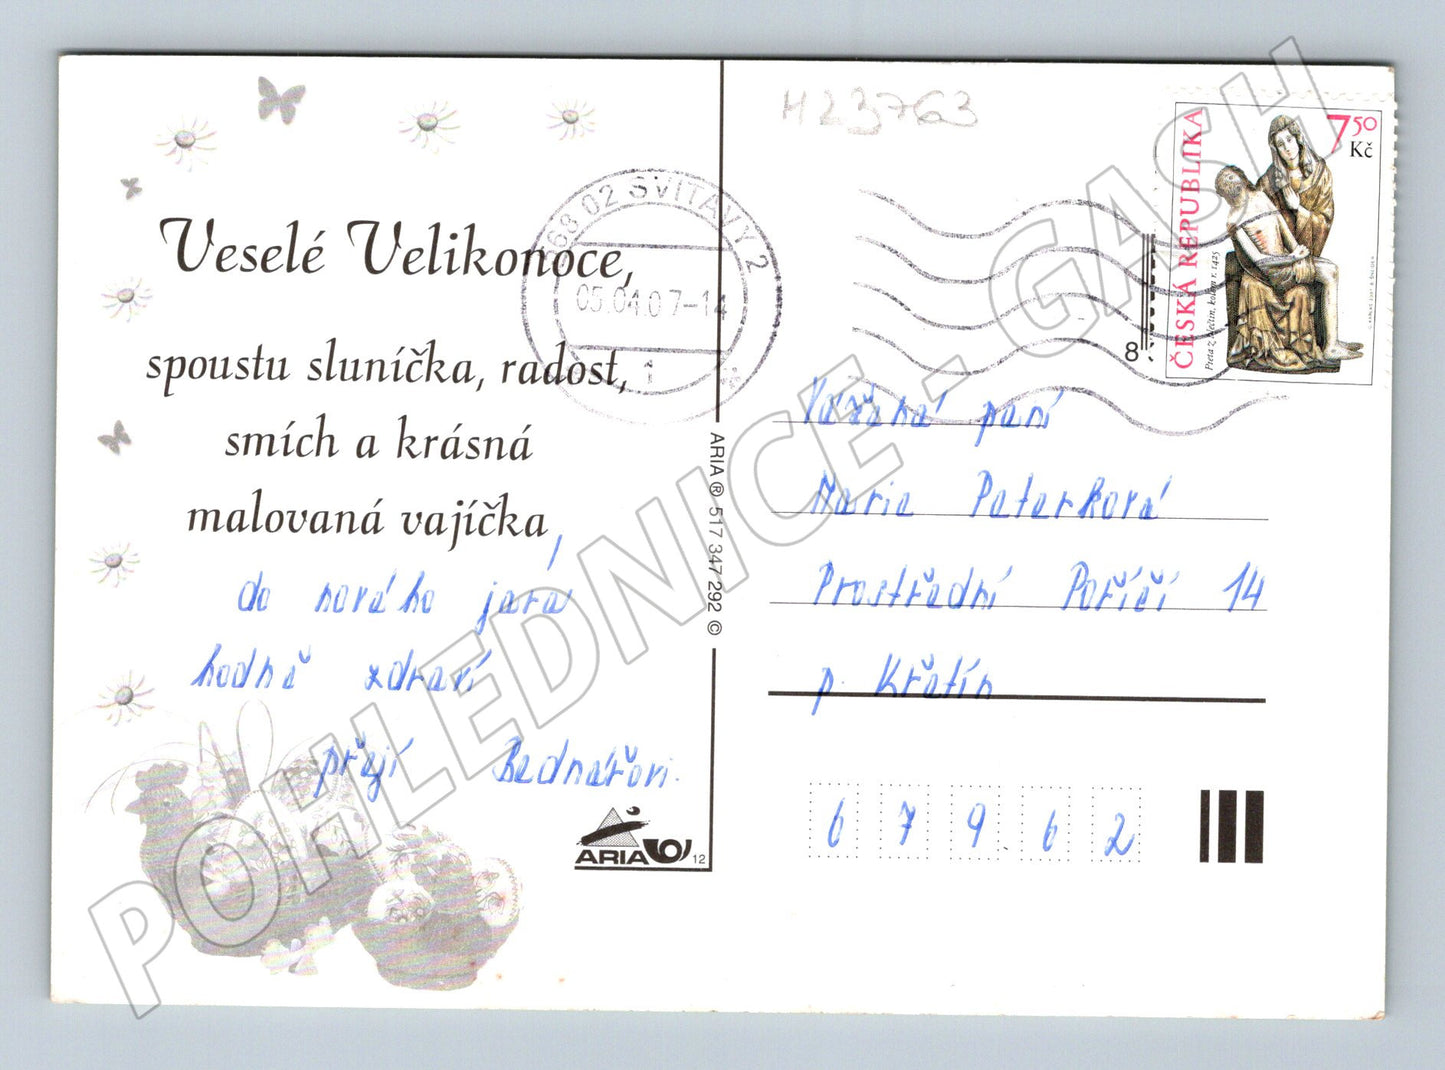 Veselé Velikonoce,
spoustu sluníčka, radost,
smích a krásná
malovaná vajíčka,
do nového jara
hodně zdraví
přejí Bednářovi.
ARIA 12
ARIA ® 517 347 292 ©
H23763
568 02 SVITAVY 2
05.04.07-14
1
8
ČESKÁ REPUBLIKA
7 50 Kč
Pieta z Všeměřic, kolem r. 1425
Vážená paní
Marie Peterková
Prostřední Poříčí 14
p. Křetín
6 7 9 6 2
POHLEDNICE - GASH